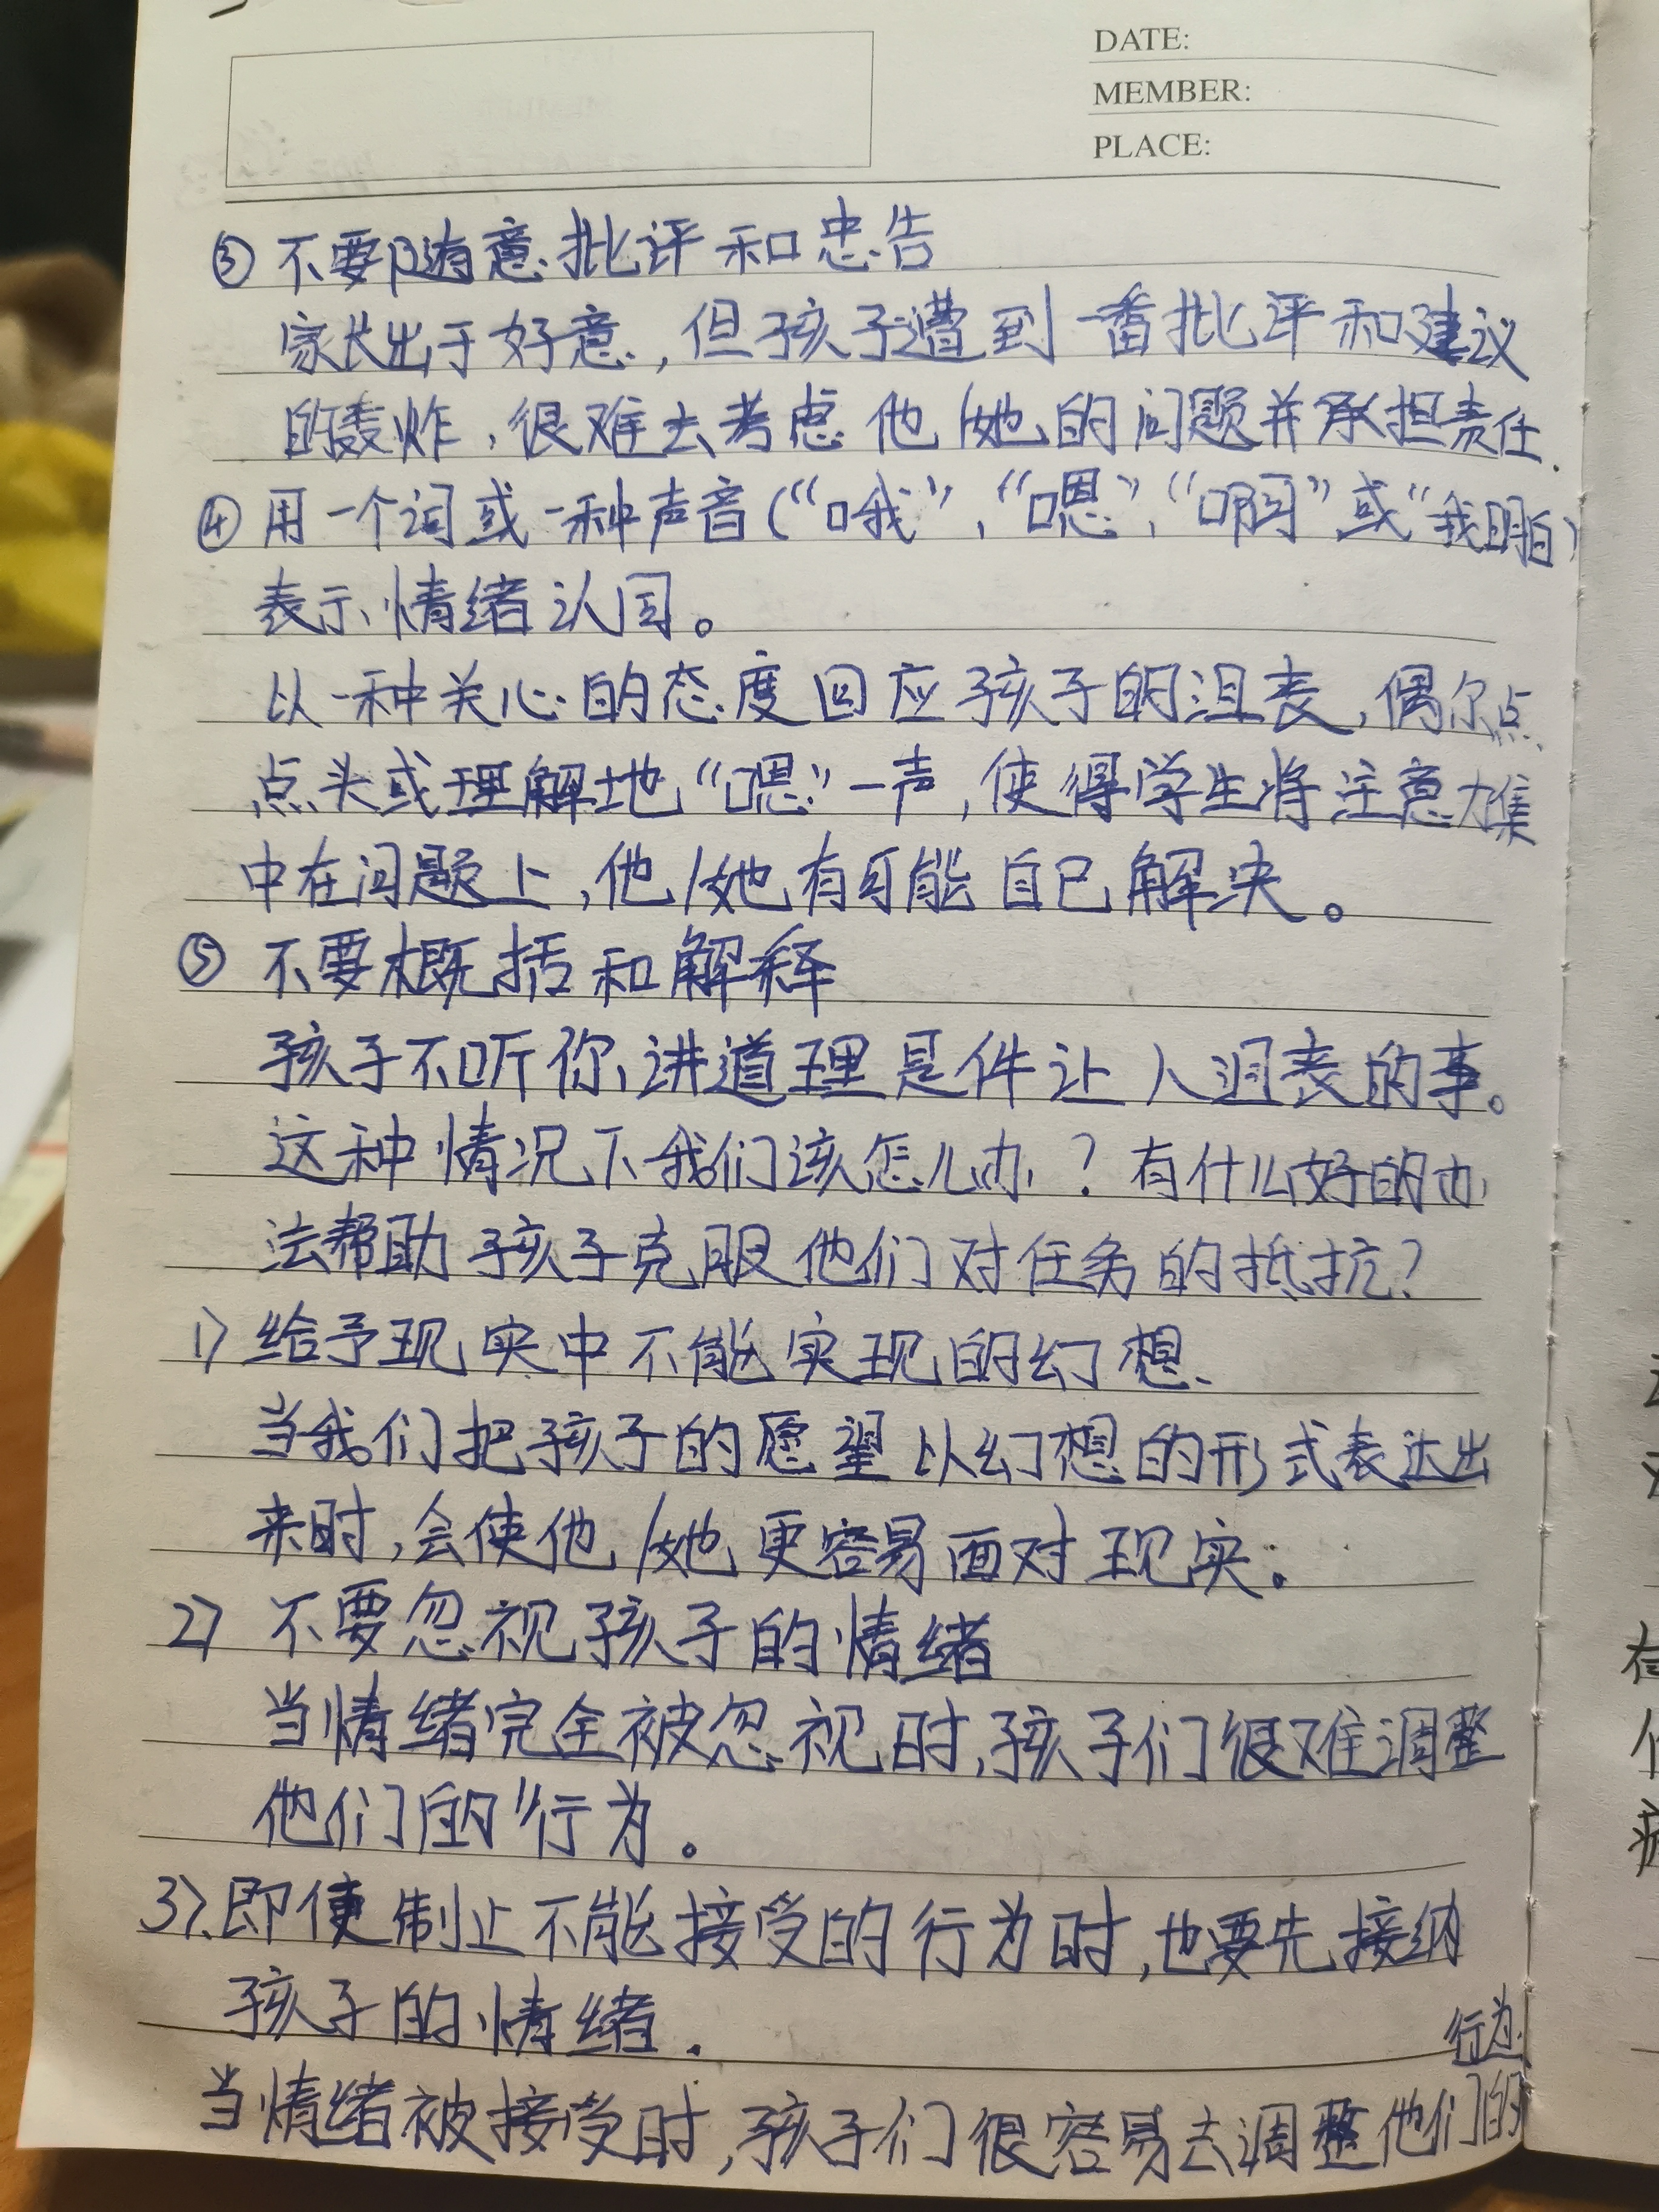 DATE:
MEMBER:
PLACE:
③ 不要随意批评和忠告
家长出于好意,但孩子遭到一番批评和建议
的轰炸,很难去考虑他/她的问题并承担责任.
④ 用一个词或一种声音(“哦”,“嗯”,“啊”或“我明白)
表示情绪认同。
以一种关心的态度回应孩子的沮丧,偶尔点
点头或理解地“嗯”一声,使得学生将注意力集
中在问题上,他/她有可能自己解决。
⑤ 不要概括和解释
孩子不听你讲道理是件让人沮丧的事。
这种情况下我们该怎么办?有什么好的办
法帮助孩子克服他们对任务的抵抗?
1) 给予现实中不能实现的幻想.
当我们把孩子的愿望以幻想的形式表达出
来时,会使他/她更容易面对现实。
2) 不要忽视孩子的情绪
当情绪完全被忽视时,孩子们很难调整
他们的行为。
3).即使制止不能接受的行为时,也要先接纳
孩子的情绪.
当情绪被接受时,孩子们很容易去调整他们的
行为.